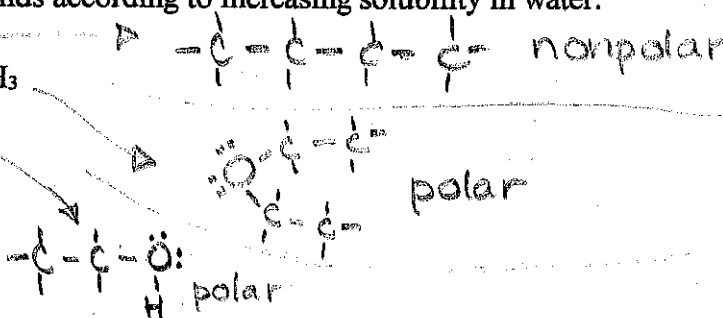 nds according to increasing solubility in water.
- C - C - C - C - nonpolar
H₃
:O - C - C -
C - C - polar
- C - C - O:
H polar